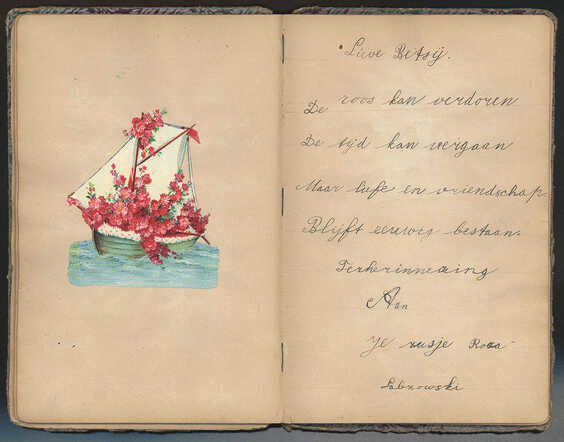 Lieve Betsij.
De roos kan verdoren
De tijd kan vergaan
Maar liefe en vriendschap
Blijft eeuweg bestaan.
Terherinneaing
Aan
Je zusje Rosa